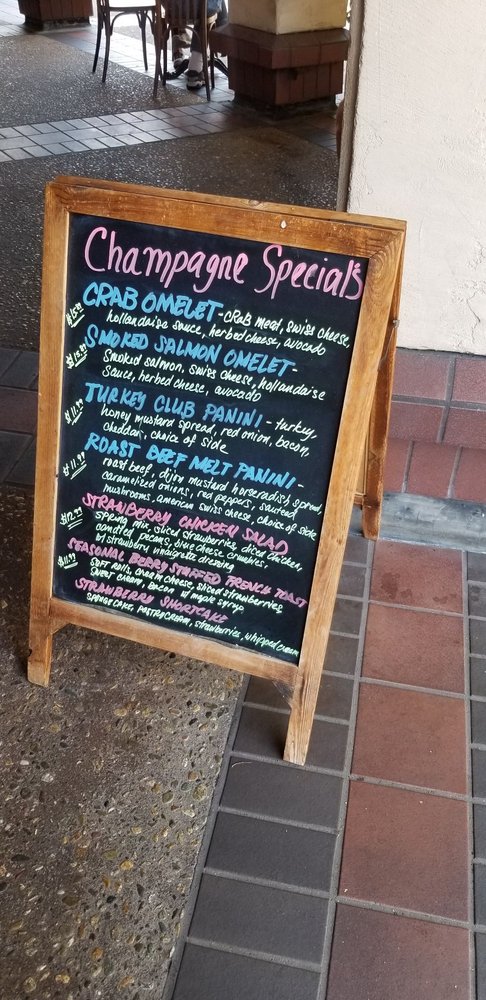 Champagne Specials
$15.99 CRAB OMELET - CRaB meat, swiss cheese,
hollandaise sauce, herbed cheese, avocado
$13.99 SMOKED SALMON OMELET -
Smoked salmon, swiss cheese, hollandaise
sauce, herbed cheese, avocado
$11.99 TURKEY CLUB PANINI - turkey,
honey mustard spread, red onion, bacon,
cheddar, choice of side
$11.99 ROAST BEEF MELT PANINI -
roast beef, dijon mustard horseradish spread,
caramelized onions, red peppers, sauteed
mushrooms, american swiss cheese, choice of side
$12.99 STRAWBERRY CHICKEN SALAD
SPRING mix, sliced strawberries, diced chicken,
candied pecans, blue cheese crumbles,
w/ strawberry vinaigrette dressing
$11.99 SEASONAL BERRY STUFFED FRENCH TOAST
SOFT ROLLS, CREAM CHEESE, sliced strawberries,
sweet cream, bacon w/ maple syrup
STRAWBERRY SHORTCAKE
SPONGE CAKE, PASTRY CREAM, strawberries, whipped cream